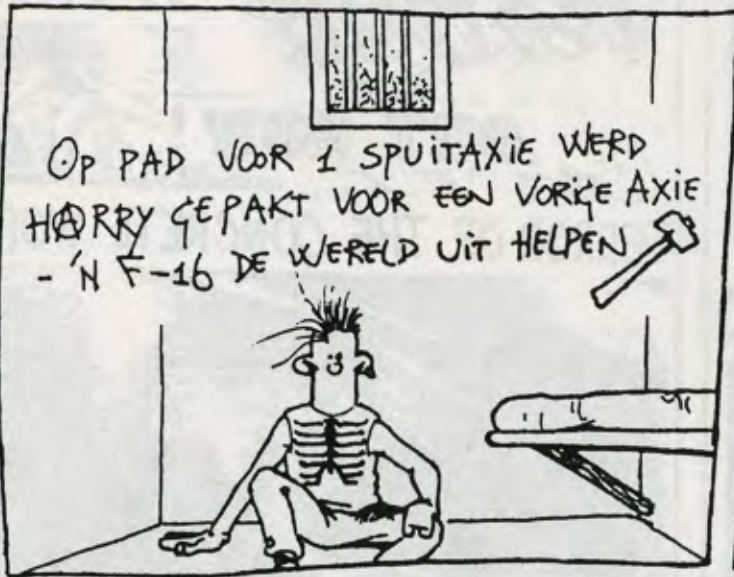 Op PAD VOOR 1 SPUITAXIE WERD
HARRY GEPAKT VOOR EEN VORIGE AXIE
- 'N F-16 DE WERELD UIT HELPEN